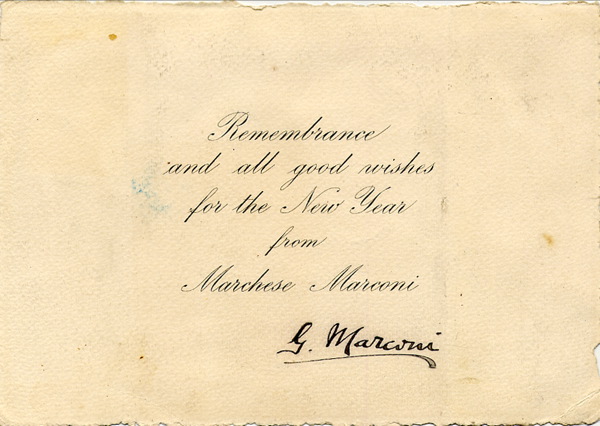 Remembrance
and all good wishes
for the New Year
from
Marchese Marconi
G. Marconi